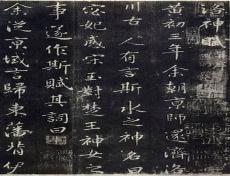 洛神賦
黃初三年余朝京師還濟洛
川古人有言斯水之神名曰
宓妃感宋玉對楚王神女之
事遂作斯賦其詞曰
余從京域言歸東藩背伊